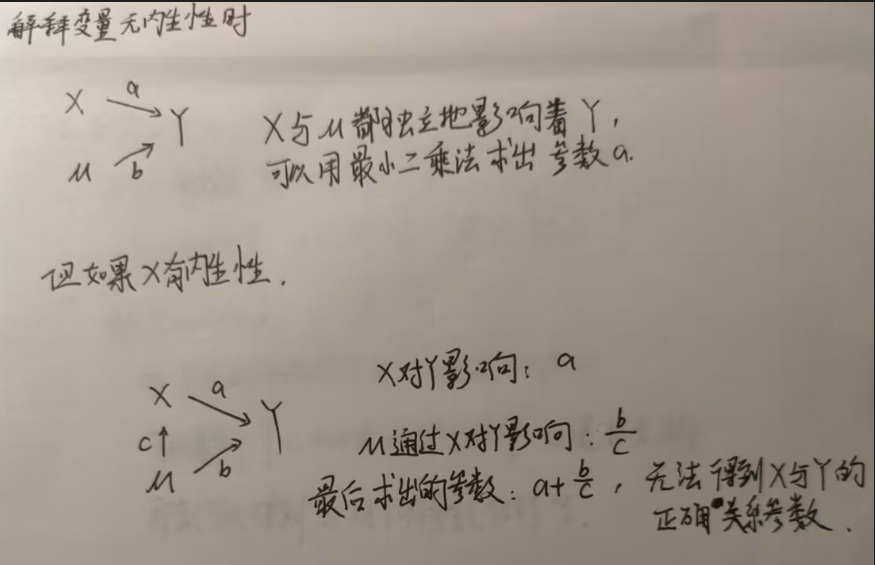 解释变量无内生性时
X a Y
μ b
X与μ都独立地影响着Y,
可以用最小二乘法求出参数a.
但如果X有内生性.
X对Y影响: a
X a Y
c
μ b
μ通过X对Y影响: b/c
最后求出的参数: a+b/c, 无法得到X与Y的
正确关系参数.